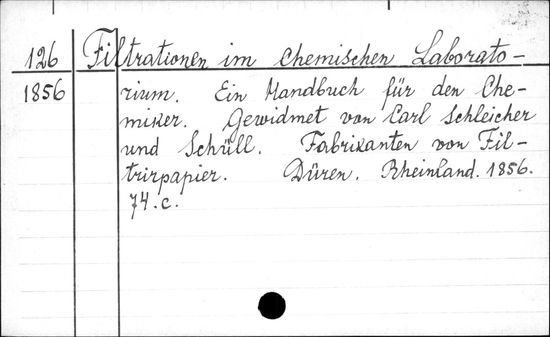 126 Filtrationen im chemischen Laborato-
1856 rium. Ein Handbuch für den Che-
miker. Gewidmet von Carl Schleicher
und Schüll. Fabrikanten von Fil-
trirpapier. Düren. Rheinland. 1856.
74.c.